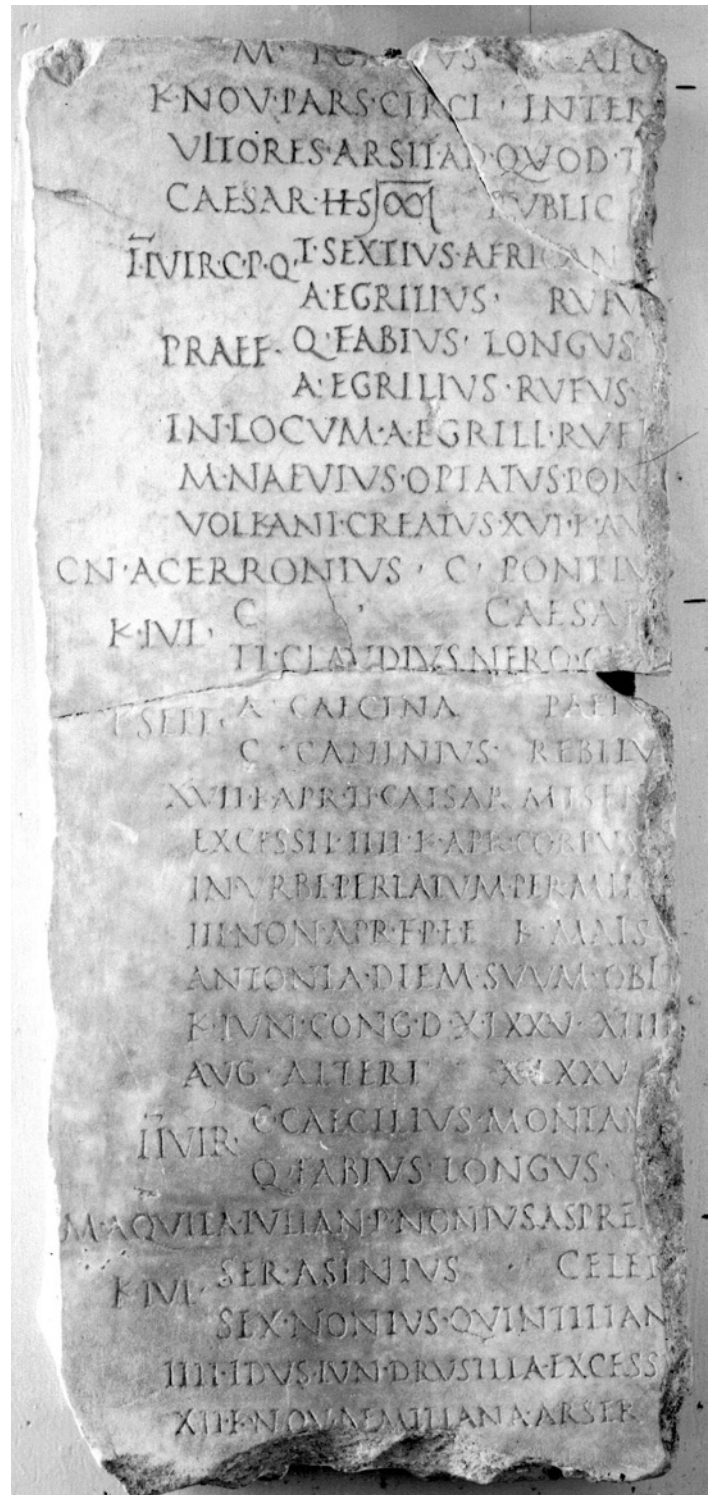 M · PORCIVS · CATO
K · NOV · PARS · CIRCI · INTER
VLTORES · ARSIT AD · QVOD · T
CAESAR · HS PVBLIC
IIVIR · C · P · Q · T · SEXTIVS · AFRICAN
A · EGRILIVS · RVFV
PRAEF · Q · FABIVS · LONGVS
A · EGRILIVS · RVFVS
IN · LOCVM · A · EGRILI · RVFI
M · NAEVIVS · OPTATVS · PON
VOLKANI · CREATVS · XVI · K · AV
CN · ACERRONIVS · C · PONTIV
K · IVL · C · CAESAR
TI · CLAVDIVS · NERO · GE
K · SEPT · A · CAECINA PAET
C · CANINIVS · REBILV
XVII · K · APR · TI · CAESAR MISEN
EXCESSIT · IIII · K · APR · CORPVS
IN VRBE · PERLATVM · PER · MILI
III · NON · APR · F · P · E · E K · MAIS
ANTONIA · DIEM · SVVM · OBIT
K · IVN · CONG · D · X · LXXV · XIIII
AVG · ALTERI X LXXV
IIVIR · C · CAECILIVS · MONTAN
Q · FABIVS LONGVS
M · AQVILA · IVLIAN · P · NONIVS · ASPREN
K · IVL · SER · ASINIVS · CELER
SEX · NONIVS · QVINTILIAN
IIII · IDVS · IVN · DRVSILLA · EXCESS
XII · K · NOV · AEMILIANA · ARSER